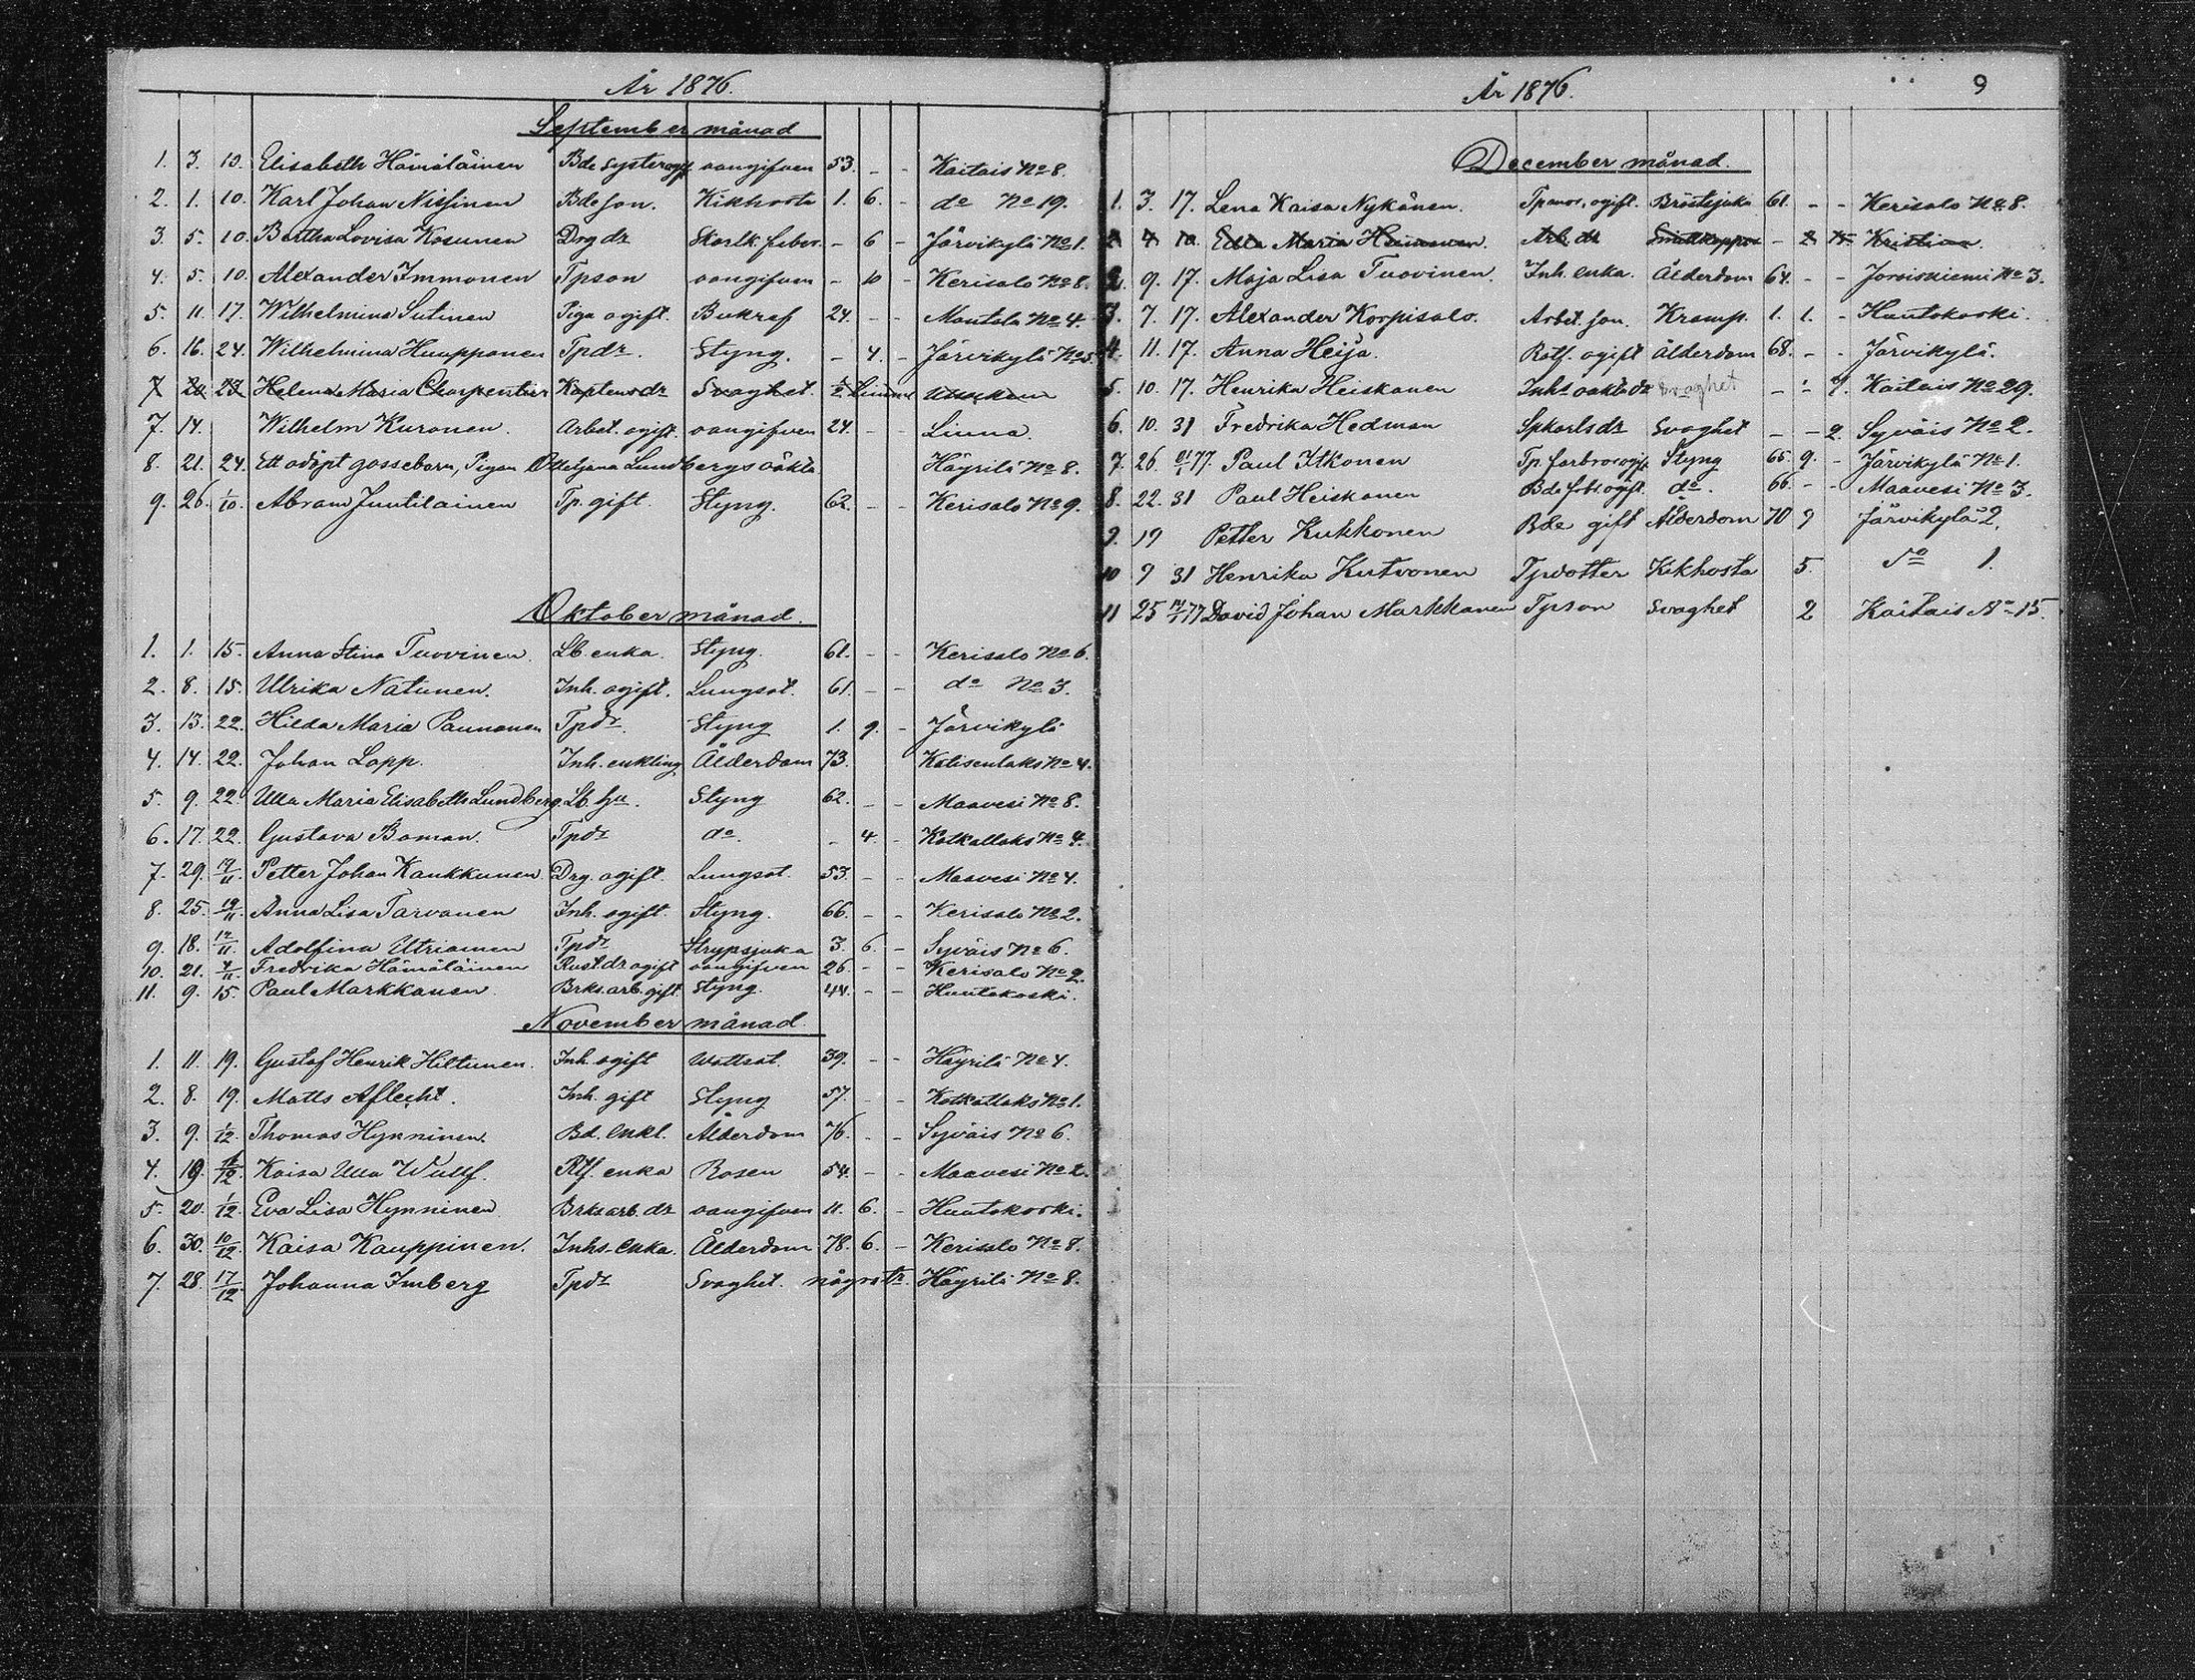 År 1876.
September månad
1. 3. 10. Elisabeth Hämäläinen Bde syster ogf. oangifven 53. - - Kaitais No 8.
2. 1. 10. Karl Johan Nissinen Bdeson. Kikhosta 1. 6. - do No 19.
3. 5. 10. Bertha Lovisa Kosunen Drg dr Skarlk. feber. - 6 - Järvikylä No 1.
4. 5. 10. Alexander Immonen Tpson oangifven - 10 - Kerisalo No 8.
5. 11. 17. Wilhelmina Sutinen Piga ogift. Bukref 24. - - Montola No 4.
6. 16. 24. Wilhelmina Huupponen Tpdr. Styng. - 4. - Järvikylä No 5.
7 20. 23. Helena Maria Charpentier Kaptens dr Svaghet. ½ timme
7. 14. Wilhelm Kuronen. Arbet. ogift. oangifven 24. - - Liuna.
8. 21. 24. Ett odöpt gossebarn, Pigan Otteljana Lundbergs oäkta Häyrilä No 8.
9. 26. 1/10. Abram Juutilainen Tp. gift. Styng. 62. - - Kerisalo No 9.
Oktober månad.
1. 1. 15. Anna Stina Tuovinen. Lb. enka. Styng. 61. - - Kerisalo No 6.
2. 8. 15. Ulrika Natunen. Inh. ogift. Lungsot. 61. - - do No 3.
3. 13. 22. Hilda Maria Paunonen Tpdr. Styng 1. 9. - Järvikylä
4. 14. 22. Johan Lapp. Inh. enkling Ålderdom 73. Katisenlaks No 4.
5. 9. 22. Ulla Maria Elisabeth Lundberg Lb. hu. Styng 62. - - Maavesi No 8.
6. 17. 22. Gustava Boman. Tpdr do. - 4. - Kotkatlaks No 4.
7. 29. 19/11. Petter Johan Kaukkunen. Drg. ogift. Lungsot. 53. - - Maavesi No 4.
8. 25. 19/11. Anna Lisa Tarvanen Inh. ogift. Styng. 66. - - Kerisalo No 2.
9. 18. 12/11. Adolfina Utriainen Tpdr Strypsjuka 3. 6. - Syväis No 6.
10. 21. 4/11. Fredrika Hämäläinen Rust. dr ogift oangifven 26. - - Kerisalo No 2.
11. 9. 15. Paul Markkanen Brks. arb. gift. Styng. 44. - - Huutokoski.
November månad.
1. 11. 19. Gustaf Henrik Hiltunen. Inh. ogift Wattsot. 39. - - Häyrilä No 4.
2. 8. 19. Matts Aflecht. Inh. gift Styng 57. - - Kotkatlaks No 1.
3. 9. 1/12. Thomas Hynninen. Bd. Enkl. Ålderdom 76. - - Syväis No 6.
4. 19. /12. Kaisa Ulla Wulff. Rtf. enka Rosen 54. - - Maavesi No 2.
5. 20. 1/12. Eva Lisa Hynninen Brks arb. dr oangifven 11. 6. - Huutokoski.
6. 30. 10/12. Kaisa Kauppinen. Inhs-Enka. Ålderdom 78. 6. - Kerisalo No 8.
7. 28. 17/12 Johanna Imberg Tpdr Svaghet. några tr. Häyrilä No 8.
År 1876.
9
December månad.
1. 3. 17. Lena Kaisa Nykänen. Tpmor, ogift. Bröstsjuka 61. - - Kerisalo No 8.
2 4 10. Edla Maria Arb. dr Smittkoppor - 2 15 Kristina.
2. 9. 17. Maja Lisa Tuovinen. Inh. enka. Ålderdom 64. - - Joroisniemi No 3.
3. 7. 17. Alexander Korpisalo. Arbet. son. Kramp. 1. 1. - Huutokoski.
4. 11. 17. Anna Heija. Rotf. ogift Ålderdom 68. - - Järvikylä.
5. 10. 17. Henrika Heiskanen Inhs oäkta dr Svaghet - - 7. Kaitais No 29.
6. 10. 31 Fredrika Hedman Spkarls dr Svaghet - - 2. Syväis No 2.
7. 26. 01/1 77. Paul Itkonen Tp. farbror ogift. Styng 65. 9. - Järvikylä No 1.
8. 22. 31 Paul Heiskanen Bde frbr. ogift. do. 66. - - Maavesi No 3.
9. 19 Petter Kukkonen Bde gift Ålderdom 70 9 Järvikylä 2.
10 9 31 Henrika Kutvonen Tpdotter Kikhosta 5. do 1.
11 25 14/1 77 David Johan Markkanen Tpson Svaghet 2 Kaitais No 15.